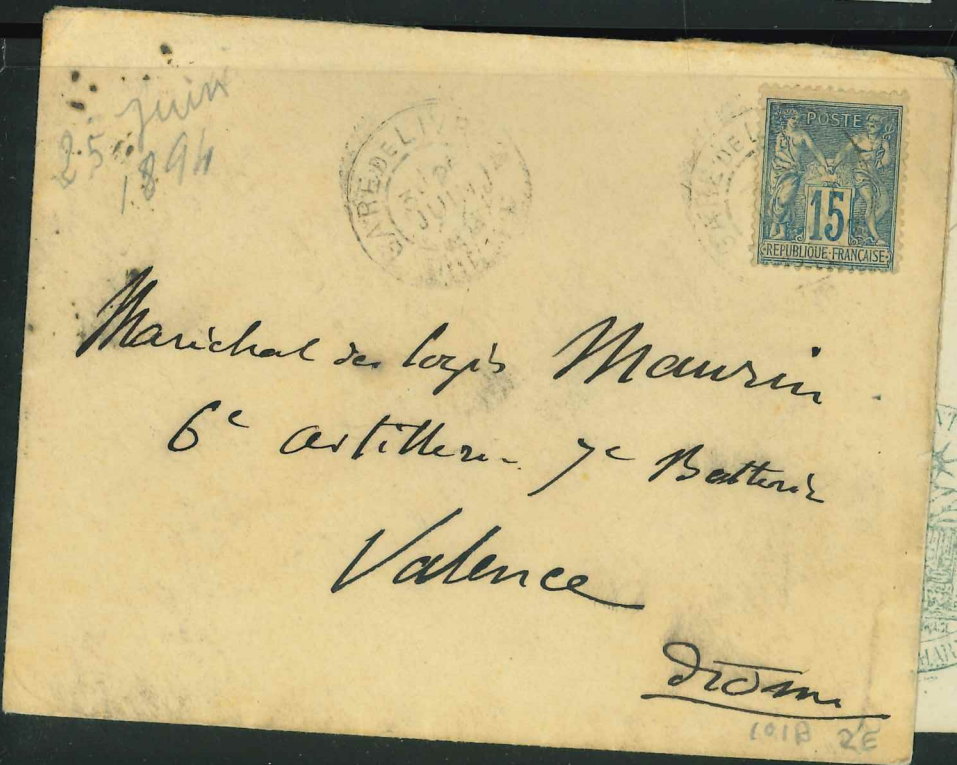 25 Juin
1894
GARE DE LIVR
JUIN
GARE DE L
POSTE
15
REPUBLIQUE FRANÇAISE
Maréchal des logis Maurin
6e artillerie 7e Batterie
Valence
Drôme
101B 2E